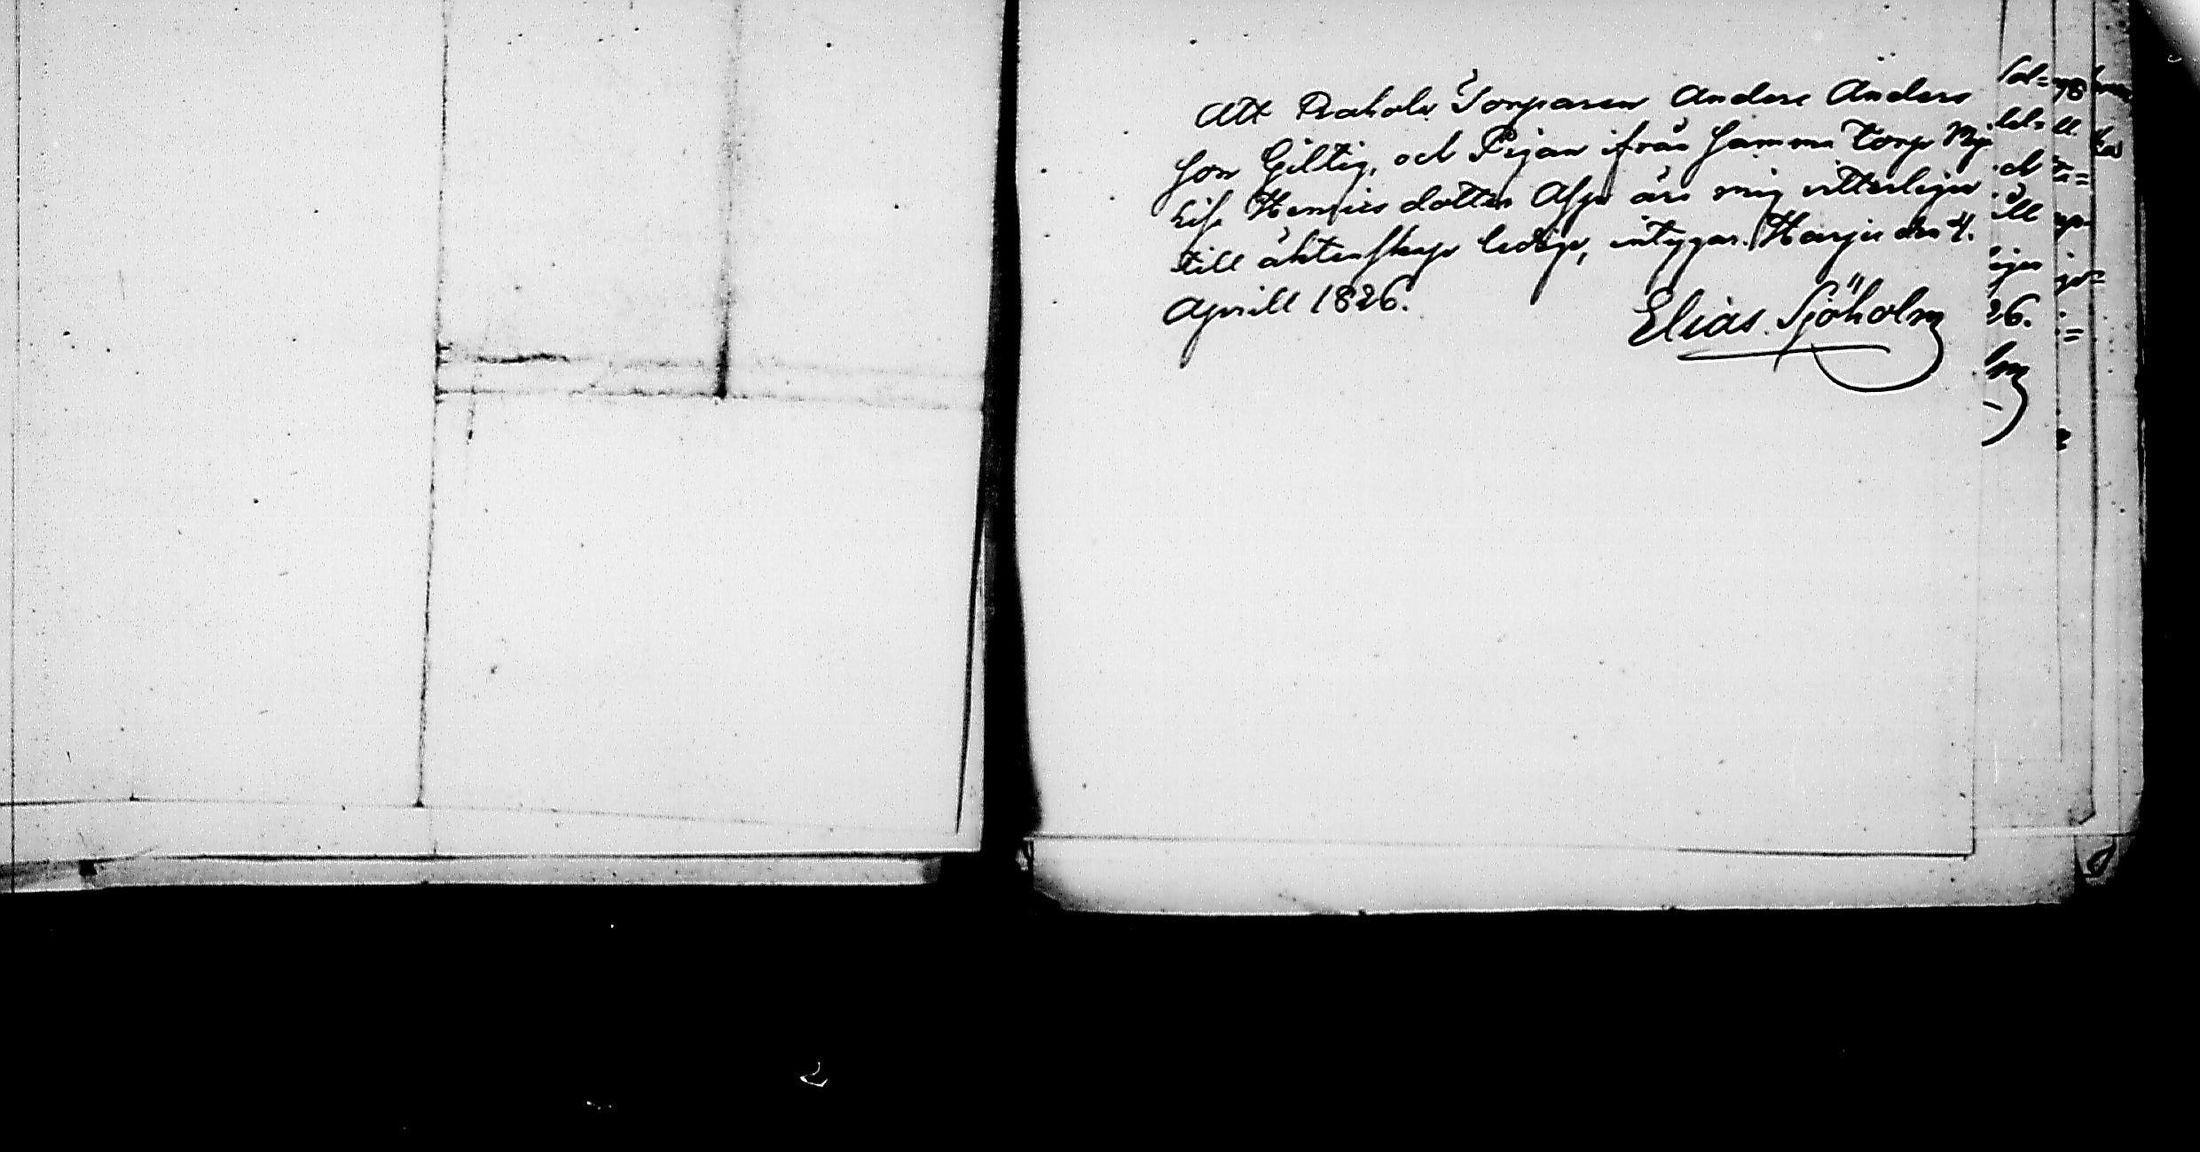 Att Drahols Torparen Anders Anders
son Giltig, och Pigan ifrån samma torp
Lis Henrics dotter Asp äro mig vitterligen
till äktenskap ledige, intygar. Harju den 4.
Aprill 1826. Elias Sjöholm